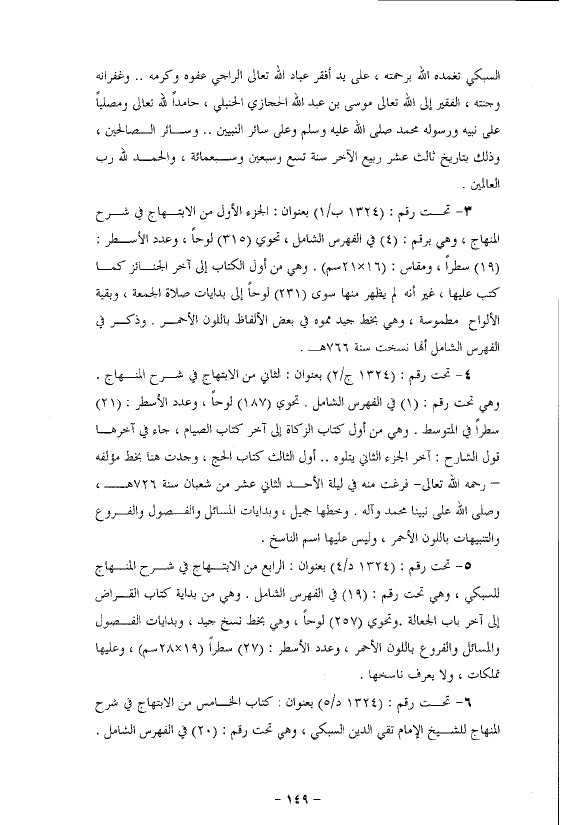 السبكي تغمده الله برحمته ، على يد أفقر عباد الله تعالى الراجي عفوه وكرمه .. وغفرانه
وجنته ، الفقير إلى الله تعالى موسى بن عبد الله الحجازي الحنبلي ، حامداً لله تعالى ومصلياً
على نبيه ورسوله محمد صلى الله عليه وسلم وعلى سائر النبيين .. وسائر الصالحين ،
وذلك بتاريخ ثالث عشر ربيع الآخر سنة تسع وسبعين وسبعمائة ، والحمد لله رب
العالمين .
٣- تحت رقم : (١٣٢٤ ب/١) بعنوان : الجزء الأول من الابتهاج في شرح
المنهاج ، وهي برقم : (٤) في الفهرس الشامل ، تحوي (٣١٥) لوحاً ، وعدد الأسطر :
(١٩) سطراً ، ومقاس : (١٦×٢١سم) . وهي من أول الكتاب إلى آخر الجنائز كما
كتب عليها ، غير أنه لم يظهر منها سوى (٢٣١) لوحاً إلى بدايات صلاة الجمعة ، وبقية
الألواح مطموسة ، وهي بخط جيد مموه في بعض الألفاظ باللون الأحمر . وذكر في
الفهرس الشامل أنها نسخت سنة ٧٦٦هـ .
٤- تحت رقم : (١٣٢٤ ج/٢) بعنوان : لثاني من الابتهاج في شرح المنهاج .
وهي تحت رقم : (١) في الفهرس الشامل . تحوي (١٨٧) لوحاً ، وعدد الأسطر : (٢١)
سطراً في المتوسط . وهي من أول كتاب الزكاة إلى آخر كتاب الصيام ، جاء في آخرها
قول الشارح : آخر الجزء الثاني يتلوه .. أول الثالث كتاب الحج ، وجدت هنا بخط مؤلفه
– رحمه الله تعالى- فرغت منه في ليلة الأحد الثاني عشر من شعبان سنة ٧٢٦هـ ،
وصلى الله على نبينا محمد وآله . وخطها جميل ، وبدايات المسائل والفصول والفروع
والتنبيهات باللون الأحمر ، وليس عليها اسم الناسخ .
٥- تحت رقم : (١٣٢٤ د/٤) بعنوان : الرابع من الابتهاج في شرح المنهاج
للسبكي ، وهي تحت رقم : (١٩) في الفهرس الشامل . وهي من بداية كتاب القراض
إلى آخر باب الجعالة .وتحوي (٢٥٧) لوحاً ، وهي بخط نسخ جيد ، وبدايات الفصول
والمسائل والفروع باللون الأحمر ، وعدد الأسطر : (٢٧) سطراً (١٩×٢٨سم) ، وعليها
تملكات ، ولا يعرف ناسخها .
٦- تحت رقم : (١٣٢٤ د/٥) بعنوان : كتاب الخامس من الابتهاج في شرح
المنهاج للشيخ الإمام تقي الدين السبكي ، وهي تحت رقم : (٢٠) في الفهرس الشامل .
- ١٤٩ -